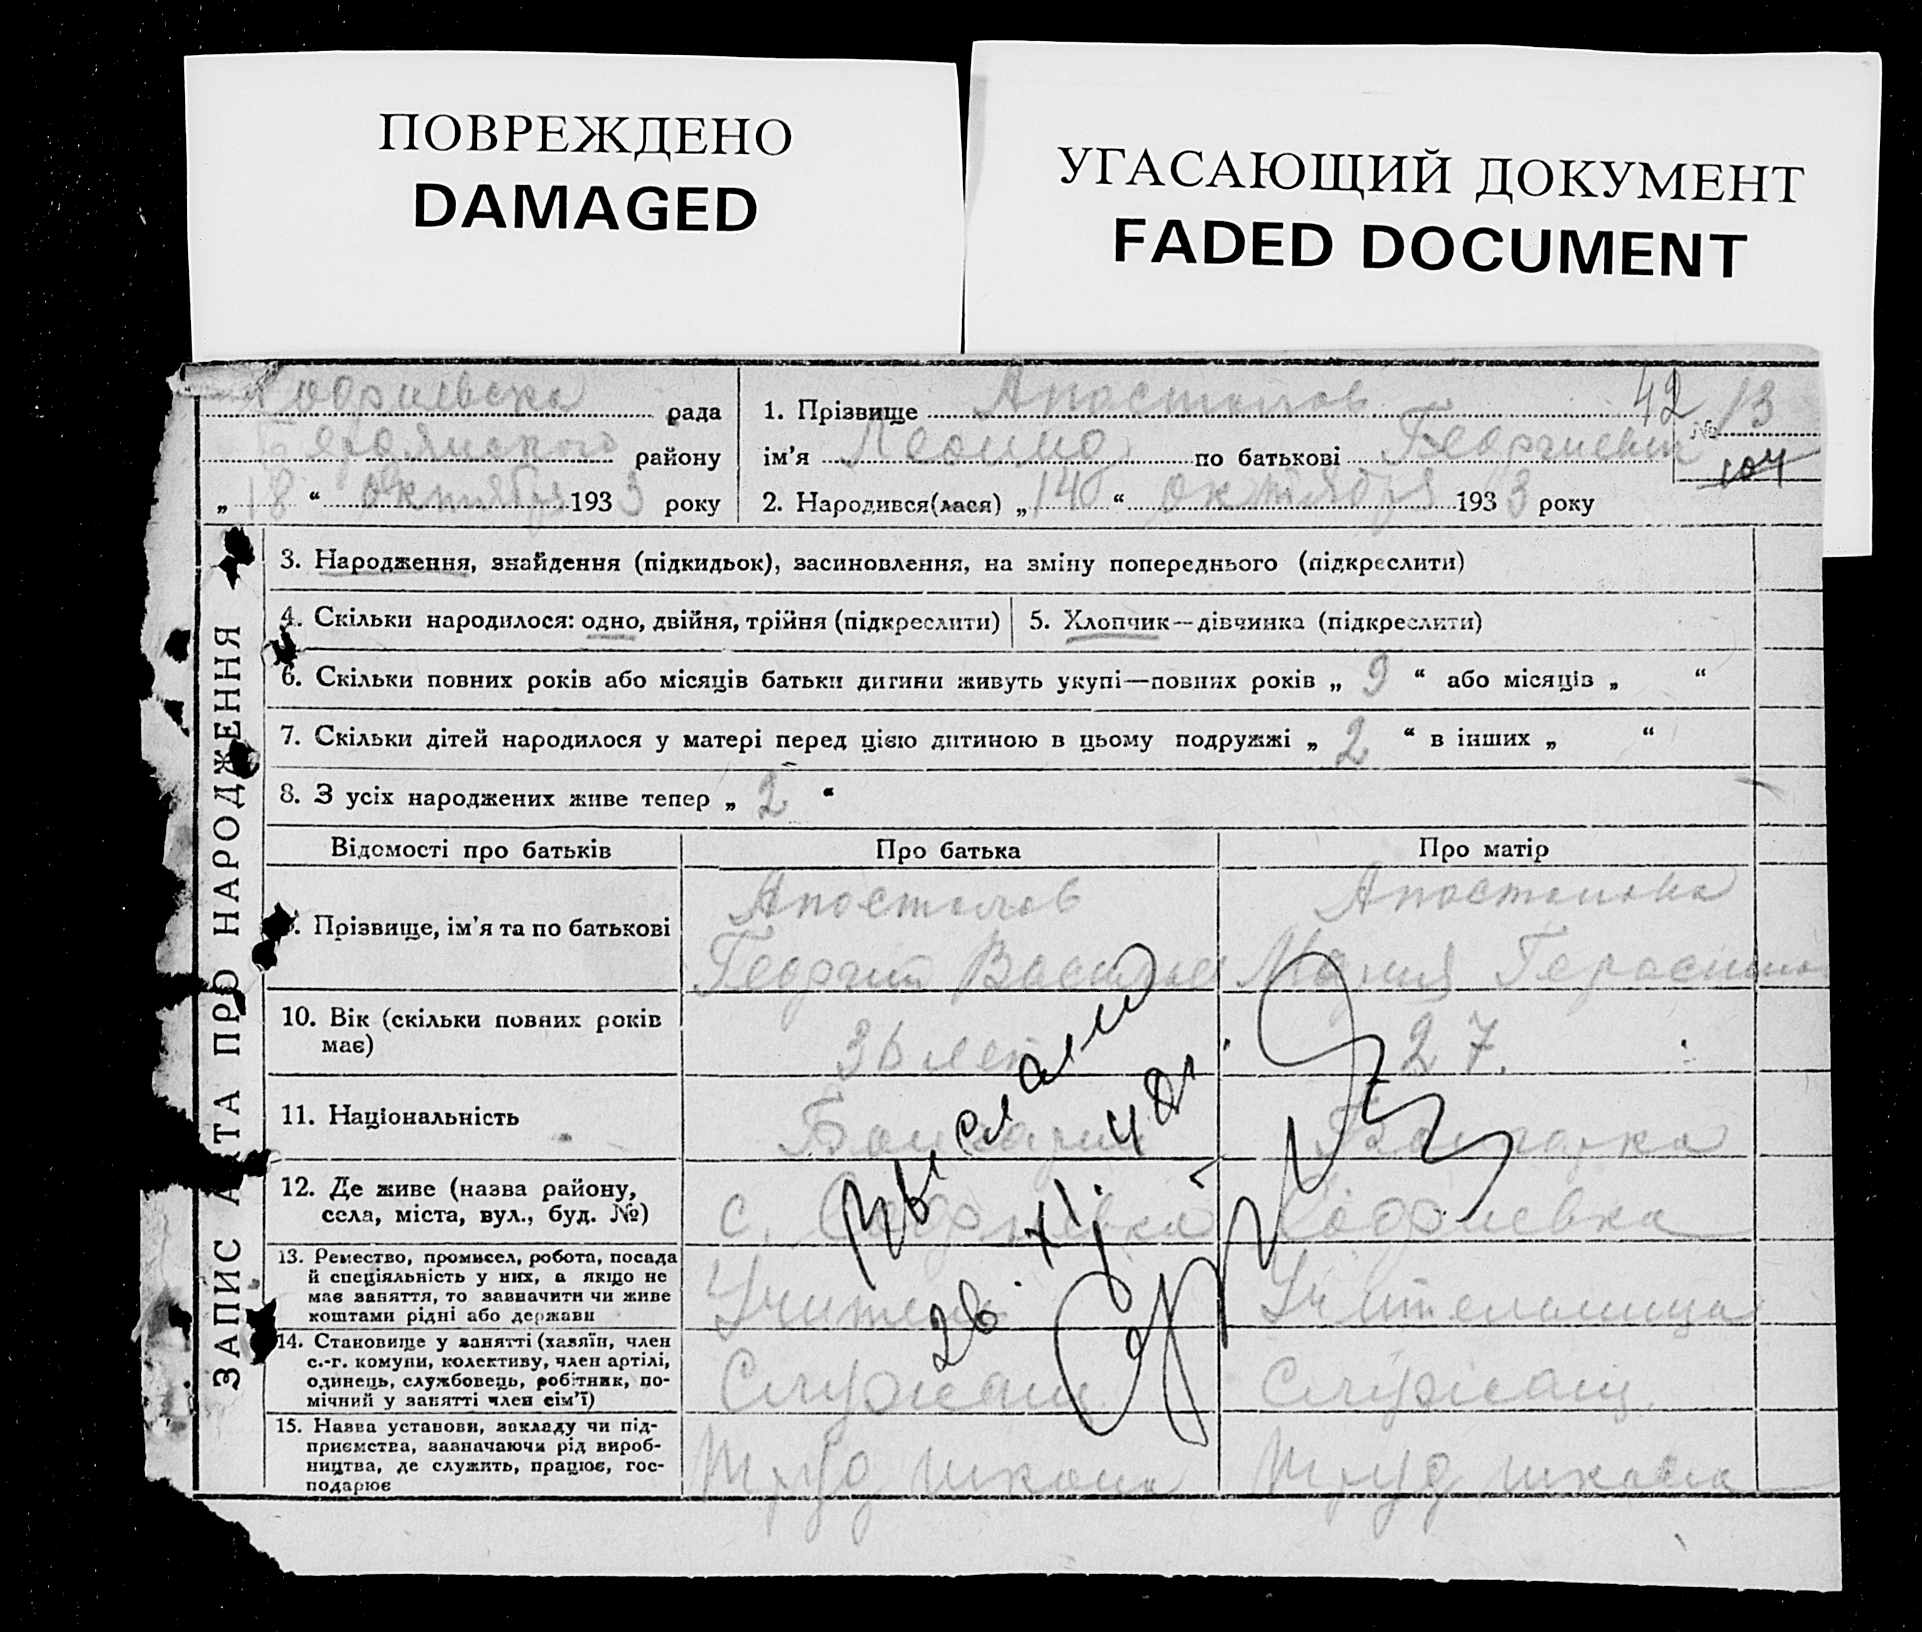 ПОВРЕЖДЕНО
DAMAGED
УГАСАЮЩИЙ ДОКУМЕНТ
FADED DOCUMENT
рада
районе
„ 18 “ октября 1933 року
1. Прізвище Апостолов
ім'я Леонид по батькові Георгиевич
2. Народився(лася) „ 14 “ октября 1933 року
42
№ 13
104
ЗАПИС АКТА ПРО НАРОДЖЕННЯ
3. Народження, знайдення (підкидьок), засиновлення, на зміну попереднього (підкреслити)
4. Скільки народилося: одно, двійня, трійня (підкреслити)
5. Хлопчик—дівчинка (підкреслити)
6. Скільки повних років або місяців батьки дитини живуть укупі—повних років „ 9 “ або місяців „ “
7. Скільки дітей народилося у матері перед цією дитиною в цьому подружжі „ 2 “ в інших „ “
8. З усіх народжених живе тепер „ 2 “
Відомості про батьків
Про батька
Про матір
9. Прізвище, ім'я та по батькові
Апостолов
Георгий
Апостолова
Мария
10. Вік (скільки повних років
має)
36 лет
27.
11. Національність
Болгарин
Болгарка
12. Де живе (назва району,
села, міста, вул., буд. №)
с.
13. Ремество, промисел, робота, посада
й спеціяльність у них, а якщо не
має заняття, то зазначити чи живе
коштами рідні або держави
Учитель
Учительница
14. Становище у занятті (хазяїн, член
с.-г. комуни, колективу, член артілі,
одинець, службовець, робітник, по-
мічний у занятті член сім'ї)
Служащ.
Служащ.
15. Назва установи, закладу чи під-
приємства, зазначаючи рід вироб-
ництва, де служить, працює, гос-
подарює
Труд школа
Труд школа